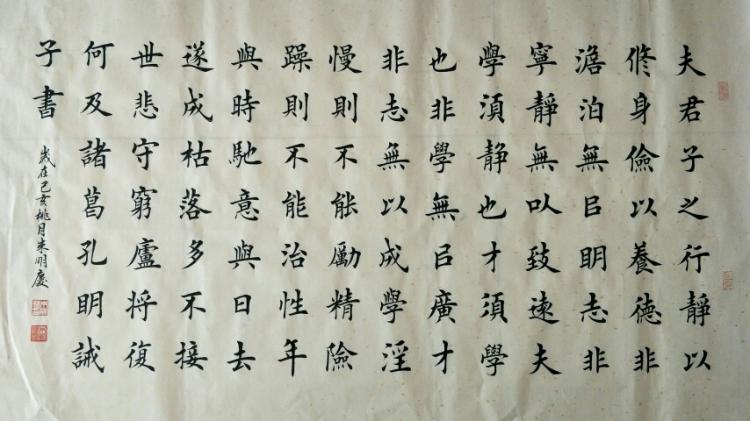 夫君子之行靜以
修身儉以養德非
澹泊無㠯明志非
寧靜無以致遠夫
學須静也才須學
也非學無㠯廣才
非志無以成學淫
慢則不能勵精險
躁則不能治性年
與時馳意與日去
遂成枯落多不接
世悲守窮廬将復
何及諸葛孔明誡
子書
歲在己亥桃月朱明慶